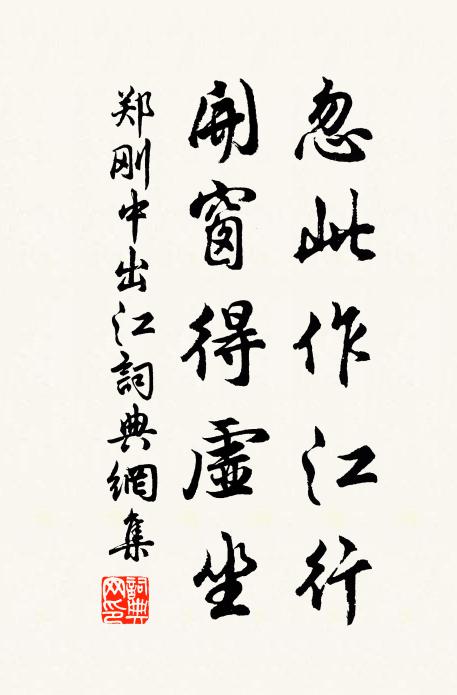 忽此作江行
開窗得虛坐
郑刚中出江詞典網集
詞典
网印